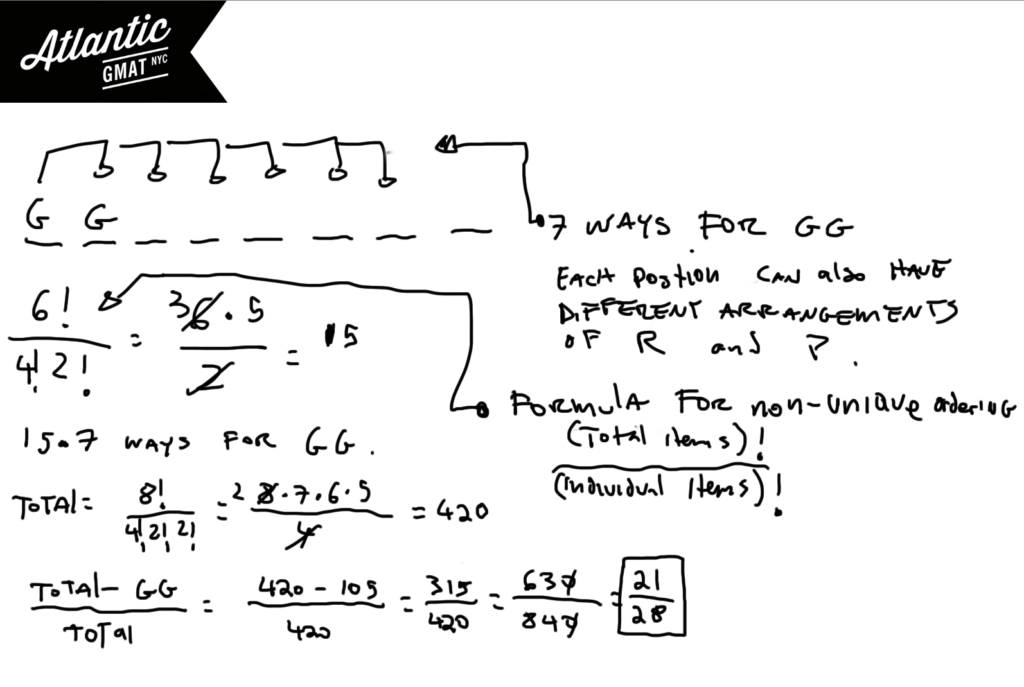 Atlantic
GMAT NYC
G G
7 WAYS FOR GG
EACH Postion CAN also HAVE
DIFFERENT ARRANGEMENTS
OF R and P.
6! / 4! 2! = 3 6 . 5 / 2 = 15
FORMULA FOR non-unique ordering
(Total items)!
(individual items)!
15.7 WAYS FOR GG.
TOTAL = 8! / 4! 2! 2! = 2 8.7.6.5 / 4 = 420
TOTAL - GG / TOTAL = 420 - 105 / 420 = 315 / 420 = 630 / 840 = 21 / 28